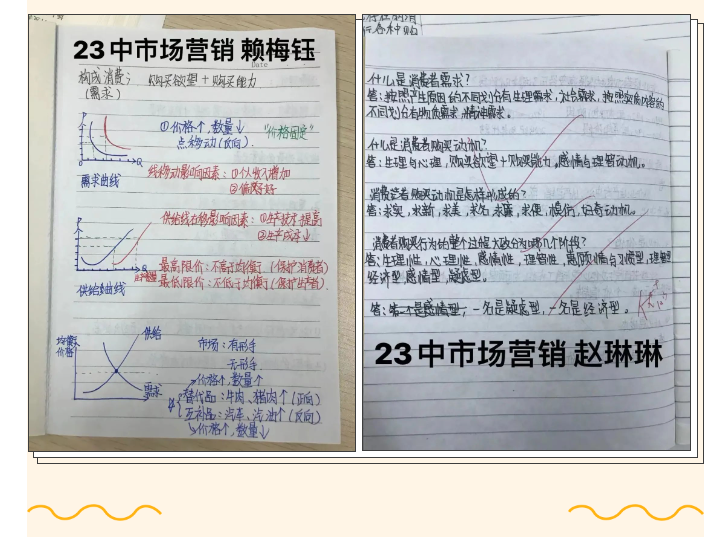 23中市场营销 赖梅钰
构成消费: 购买欲望+购买能力
(需求)
①价格个,数量↓ "价格固定"
点移动(反向).
线移动影响因素:①个人收入增加
②偏好
需求曲线
供给线右移影响因素:①生产技术提高
②生产成本↓
最高限价:不高于均衡(保护消费者)
最低限价:不低于均衡(保护生产者).
供给曲线
均衡
价格
供给
需求
市场:有形手
无形手
价格个,数量个
替代品:牛肉、猪肉个(正向)
互补品:汽车、汽油个(反向)
价格个,数量↓
什么是消费者需求?
答:按照产生原因的不同划分有生理需求,社会需求,按照实质内容的
不同划分有物质需求,精神需求。
什么是消费者购买动机?
答:生理与心理,购买欲望+购买能力,感情与理智动机。
消费者购买动机是怎样形成的?
答:求实,求新,求美,求名,求廉,求便,模仿,好奇动机。
消费者购买行为的整个过程大致分为哪几个阶段?
答:生理性,心理性,感情性,理智性,惠顾情与习惯型,理智型
经济型,感情型,疑虑型。
答:一名是疑虑型,一名是经济型。
23中市场营销 赵琳琳